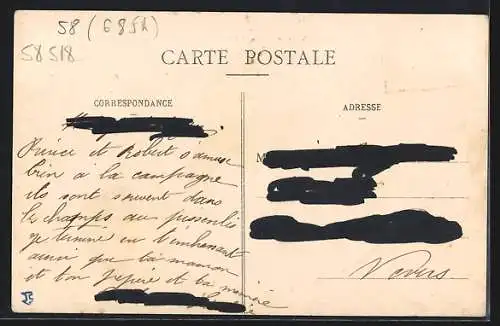 58 (685h)
58518
CARTE POSTALE
CORRESPONDANCE
ADRESSE
M
Prince et Robert s'amuse
bien a la campagne
ils sont souvent dans
les champs au pissenlis
je termine en t'embrassant
ainsi que ta maman
et ton pépère et ta mémère
Nevers
JC